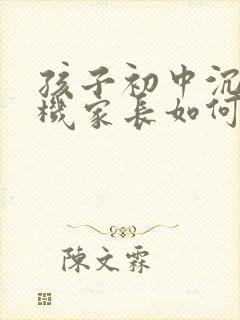 孩子初中沉
機家長如何
陳文霖